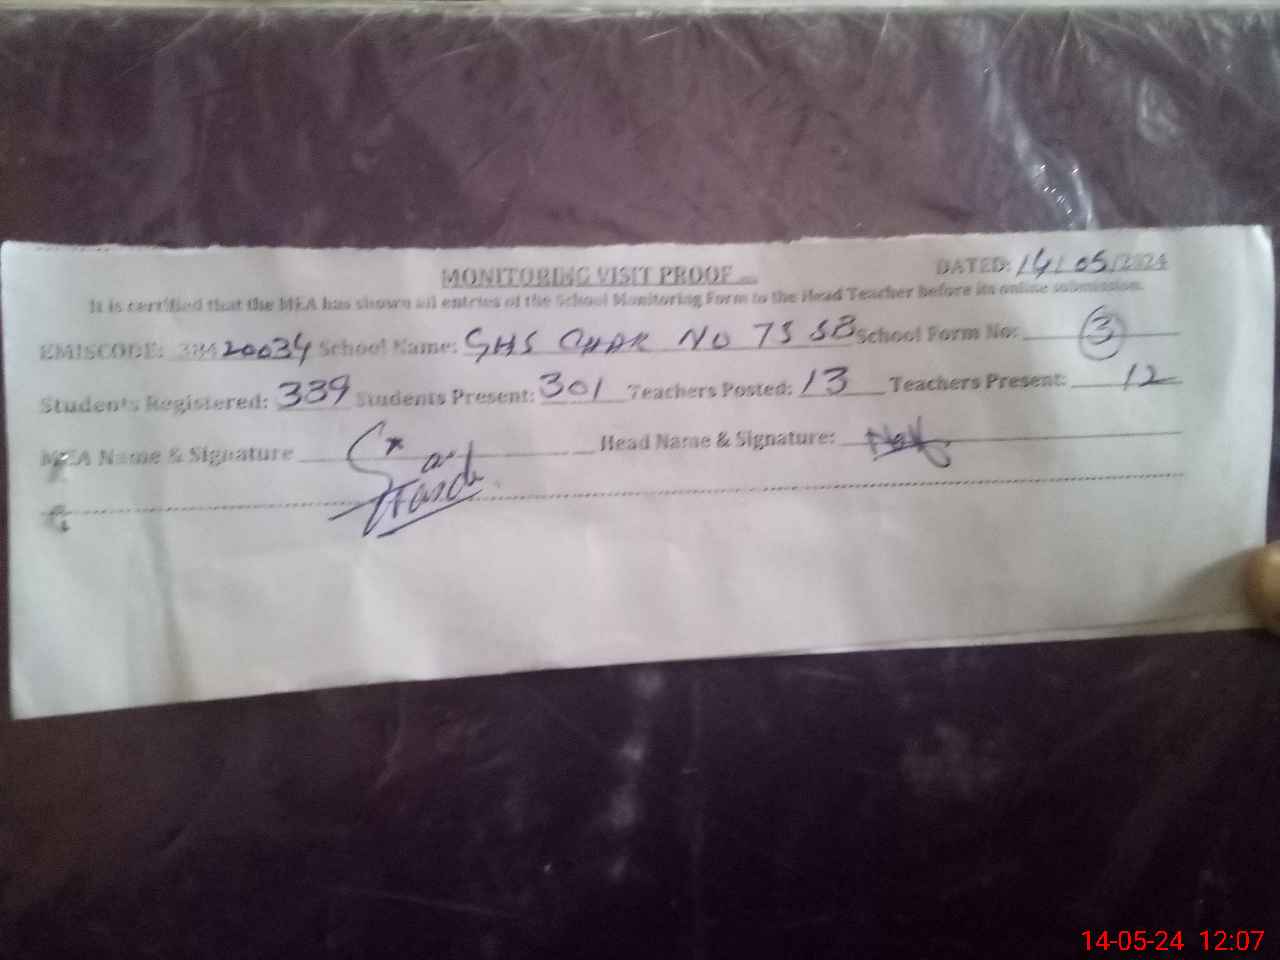 MONITORING VISIT PROOF DATED: 14/05/2024
It is certified that the MEA has shown all entries of the School Monitoring Form to the Head Teacher before its online submission.
EMISCODE: 38420034 School Name: GHS CHAK NO 75 SB School Form No: 3
Students Registered: 339 Students Present: 301 Teachers Posted: 13 Teachers Present: 12
MEA Name & Signature Head Name & Signature:
14-05-24 12:07